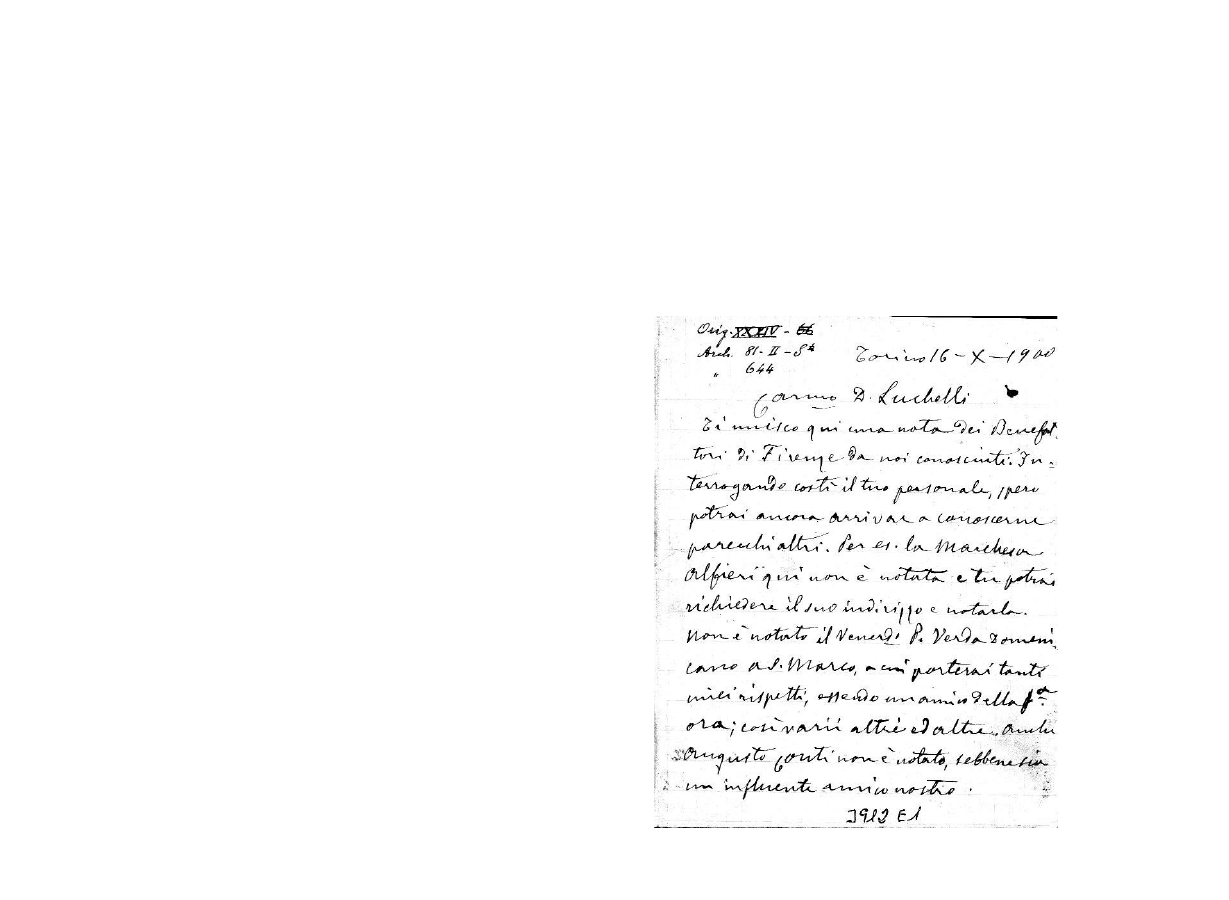 Orig. XXXIV - 66
Arch. 81-II-S4
" 644
Torino 16-X-1900
Carmo D. Luchelli
Ti unisco qui una nota dei Benefat
tori di Firenze da noi conosciuti. In-
terrogando costì il tuo personale, spero
potrai ancora arrivar a conoscerne
parecchi altri. Per es. la Marchesa
Alfieri qui non è notata e tu potrai
richiedere il suo indirizzo e notarla.
Non è notato il Venerdo P. Verda Domeni,
cano a S. Marco, a cui porterai tanti
miei rispetti, essendo un amico della pa
ora; così varii altri ed altre. Anche
Augusto Conti non è notato, sebbene sia
un influente amico nostro.
3912 E1